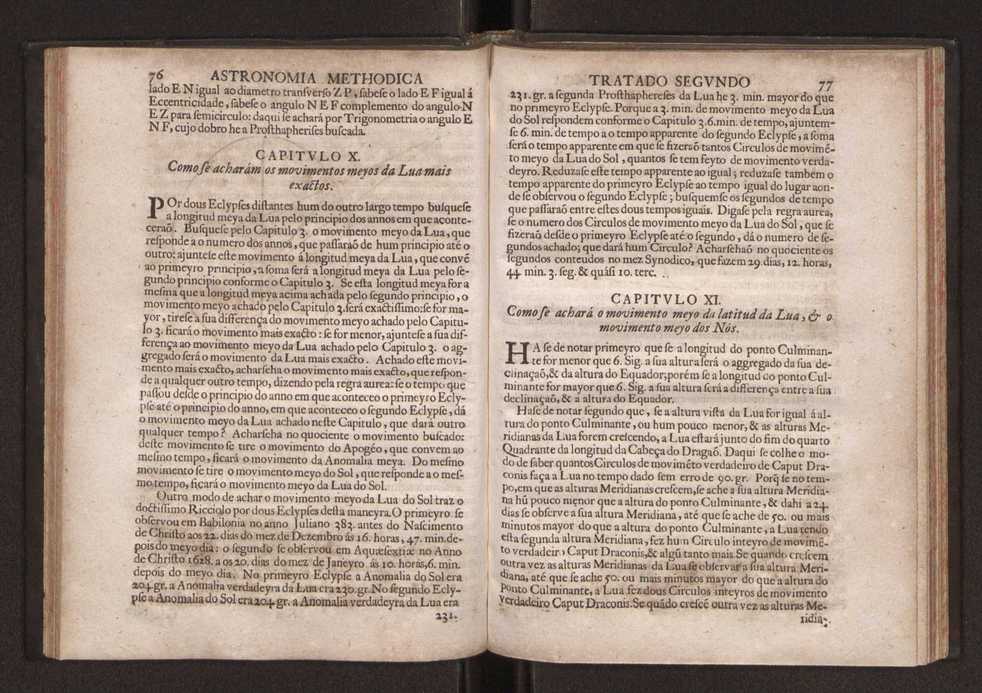 76 ASTRONOMIA METHODICA
lado E N igual ao diametro transverso Z P, sabese o lado E F igual á
Eccentricidade, sabese o angulo N E F complemento do angulo N
E Z para semicirculo: daqui se achará por Trigonometria o angulo E
N F, cujo dobro he a Prosthapherises buscada.
CAPITVLO X.
Como se acharám os movimentos meyos da Lua mais
exactos.
POr dous Eclypses distantes hum do outro largo tempo busquese
a longitud meya da Lua pelo principio dos annos em que aconte-
ceraõ. Busquese pelo Capitulo 3. o movimento meyo da Lua, que
responde a o numero dos annos, que passaraõ de hum principio até o
outro: ajuntese este movimento á longitud meya da Lua, que convẽ
ao primeyro principio, a soma será a longitud meya da Lua pelo se-
gundo principio conforme o Capitulo 3. Se esta longitud meya for a
mesma que a longitud meya acima achada pelo segundo principio, o
movimento meyo achado pelo Capitulo 3. será exactissimo: se for ma-
yor, tirese a sua differença do movimento meyo achado pelo Capitu-
lo 3. ficará o movimento mais exacto: se for menor, ajuntese a sua dif-
ferença ao movimento meyo da Lua achado pelo Capitulo 3. o ag-
gregado será o movimento da Lua mais exacto. Achado este movi-
mento mais exacto, acharseha o movimento mais exacto, que respon-
de a qualquer outro tempo, dizendo pela regra aurea: se o tempo que
passou desde o principio do anno em que aconteceo o primeyro Ecly-
pse até o principio do anno, em que aconteceo o segundo Eclypse, dá
o movimento meyo da Lua achado neste Capitulo, que dará outro
qualquer tempo? Acharseha no quociente o movimento buscado:
deste movimento se tire o movimento do Apogéo, que convem ao
mesmo tempo, ficará o movimento da Anomalia meya. Do mesmo
movimento se tire o movimento meyo do Sol, que responde a o mes-
mo tempo, ficará o movimento meyo da Lua do Sol.
Outro modo de achar o movimento meyo da Lua do Sol traz o
doctissimo Ricciolo por dous Eclypses desta maneyra. O primeyro se
observou em Babilonia no anno Juliano 383. antes do Nascimento
de Christo aos 22. dias do mez de Dezembro ás 16. horas, 47. min. de-
pois do meyo dia: o segundo se observou em Aquæsextiæ no Anno
de Christo 1628. a os 20. dias do mez de Janeyro ás 10. horas, 6. min.
depois do meyo dia. No primeyro Eclypse a Anomalia do Sol era
204. gr. a Anomalia verdadeyra da Lua era 230. gr. No segundo Ecly-
pse a Anomalia do Sol era 204. gr. a Anomalia verdadeyra da Lua era
231.
TRATADO SEGVNDO 77
231. gr. a segunda Prosthaphereses da Lua he 3. min. mayor do que
no primeyro Eclypse. Porque a 3. min. de movimento meyo da Lua
do Sol respondem conforme o Capitulo 3. 6. min. de tempo, ajuntem-
se 6. min. de tempo a o tempo apparente do segundo Eclypse, a soma
será o tempo apparente em que se fizeraõ tantos Circulos de movimẽ-
to meyo da Lua do Sol, quantos se tem feyto de movimento verda-
deyro. Reduzase este tempo apparente ao igual; reduzase tambem o
tempo apparente do primeyro Eclypse ao tempo igual do lugar aon-
de se observou o segundo Eclypse; busquemse os segundos de tempo
que passaraõ entre estes dous tempos iguais. Digase pela regra aurea,
se o numero dos Circulos de movimento meyo da Lua do Sol, que se
fizeraõ desde o primeyro Eclypse até o segundo, dá o numero de se-
gundos achado; que dará hum Circulo? Acharsehaõ no quociente os
segundos conteudos no mez Synodico, que fazem 29. dias, 12. horas,
44. min. 3. seg. & quási 10. terc.
CAPITVLO XI.
Como se achará o movimento meyo da latitud da Lua, & o
movimento meyo dos Nós.
HA se de notar primeyro que se a longitud do ponto Culminan-
te for menor que 6. Sig. a sua altura será o aggregado da sua de-
clinaçaõ, & da altura do Equador; porém se a longitud do ponto Cul-
minante for mayor que 6. Sig. a sua altura será a differença entre a sua
declinaçaõ, & a altura do Equador.
Hase de notar segundo que, se a altura vista da Lua for igual á al-
tura do ponto Culminante, ou hum pouco menor, & as alturas Me-
ridianas da Lua forem crescendo, a Lua estará junto do fim do quarto
Quadrante da longitud da Cabeça do Dragaõ. Daqui se colhe o mo-
do de saber quantos Circulos de movimẽto verdadeiro de Caput Dra-
conis faça a Lua no tempo dado sem erro de 90. gr. Porq̃ se no tem-
po, em que as alturas Meridianas crescem, se ache a sua altura Meridia-
na hũ pouco menor que a altura do ponto Culminante, & dahi a 24.
dias se observe a sua altura Meridiana, até que se ache de 50. ou mais
minutos mayor do que a altura do ponto Culminante, a Lua tendo
esta segunda altura Meridiana, fez hum Circulo inteyro de movimẽ-
to verdadeiro Caput Draconis, & algũ tanto mais. Se quando crescem
outra vez as alturas Meridianas da Lua se observar a sua altura Meri-
diana, até que se ache 50. ou mais minutos mayor do que a altura do
Ponto Culminante, a Lua fez dous Circulos inteyros de movimento
verdadeiro Caput Draconis. Se quãdo crescẽ outra vez as alturas Me-
ridia-